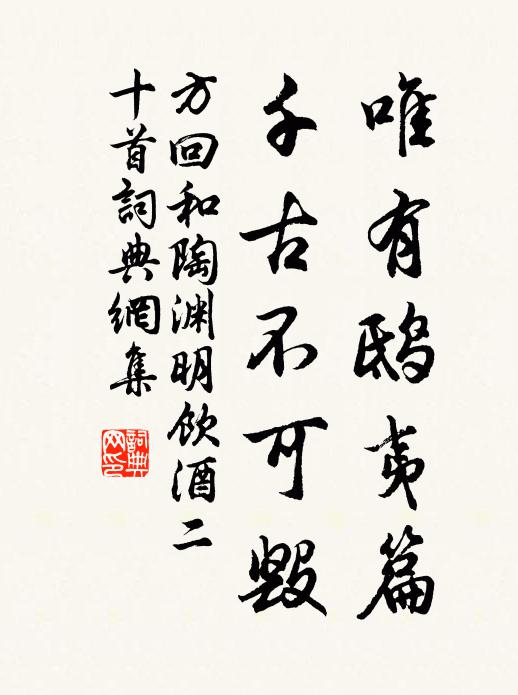 唯有鸱夷篇
千古不可毀
方回和陶渊明飲酒二
十首詞典網集
詞典
网印